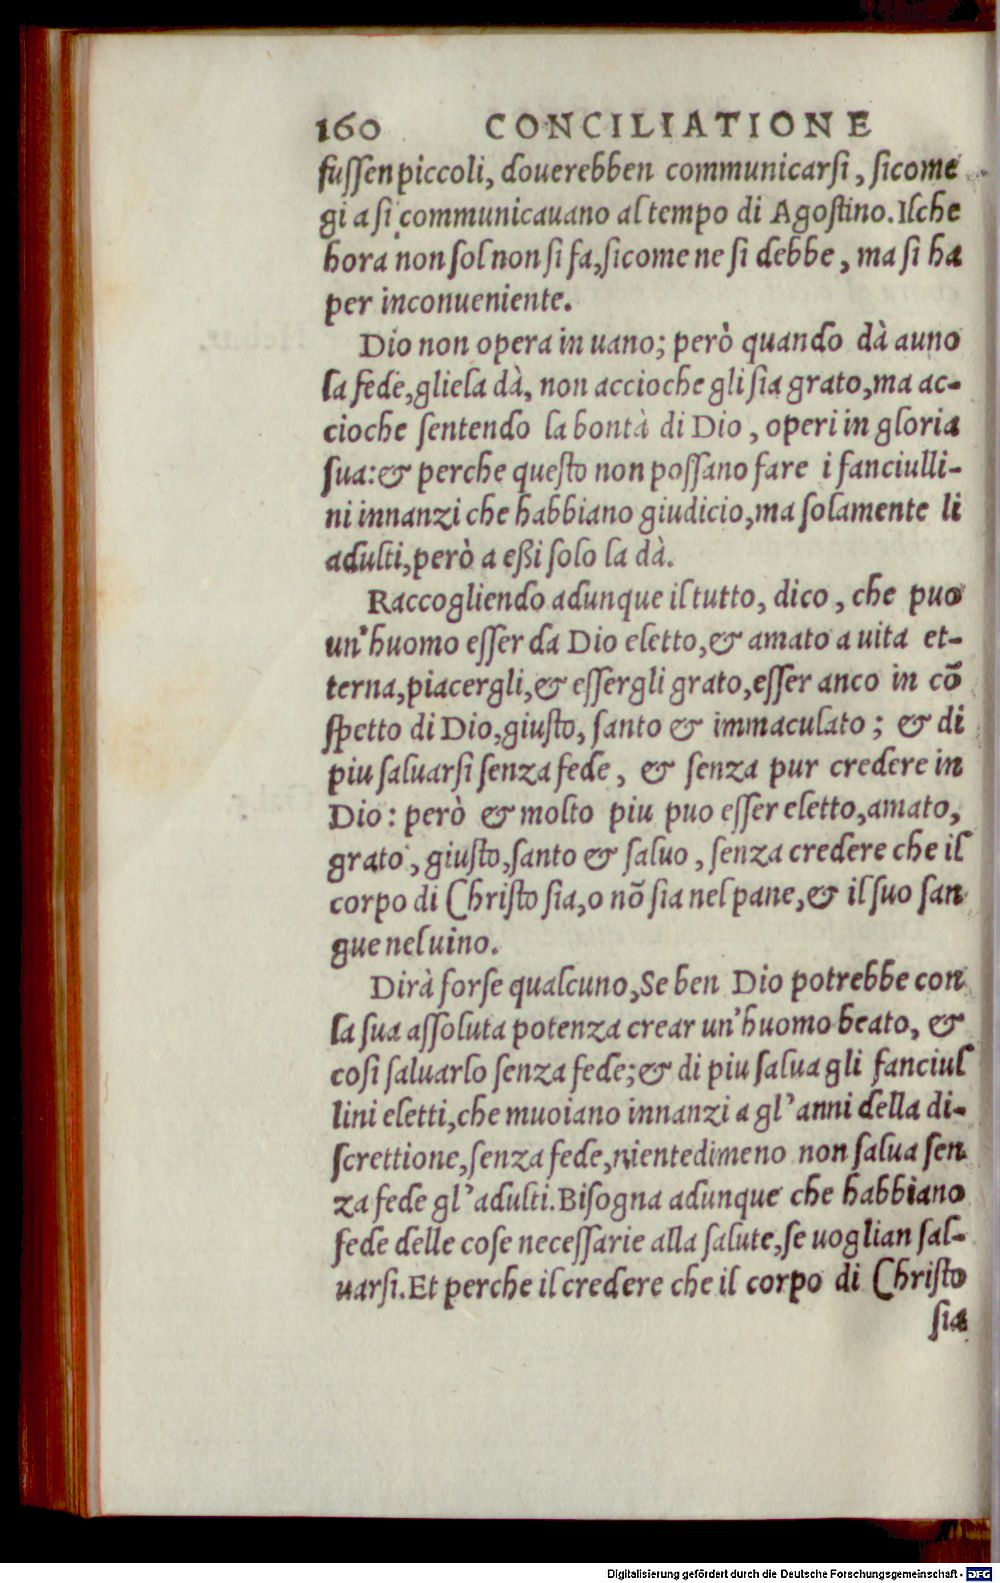 160 CONCILIATIONE
fuſſen piccoli, douerebben communicarſi, ſicome
gia ſi communicauano al tempo di Agoſtino. Ilche
hora non ſol non ſi fa, ſicome ne ſi debbe, ma ſi ha
per inconueniente.
Dio non opera in uano; però quando dà auno
la fede, gliela dà, non accioche gli ſia grato, ma ac-
cioche ſentendo la bontà di Dio, operi in gloria
ſua: & perche queſto non poſſano fare i fanciulli-
ni innanzi che habbiano giudicio, ma ſolamente li
adulti, però a eßi ſolo la dà.
Raccogliendo adunque il tutto, dico, che puo
un'huomo eſſer da Dio eletto, & amato a uita et-
terna, piacergli, & eſſergli grato, eſſer anco in cõ
ſpetto di Dio, giuſto, ſanto & immaculato; & di
piu ſaluarſi ſenza fede, & ſenza pur credere in
Dio: però & molto piu puo eſſer eletto, amato,
grato, giuſto, ſanto & ſaluo, ſenza credere che il
corpo di Chriſto ſia, o nõ ſia nel pane, & il ſuo ſan
gue nel uino.
Dirà forſe qualcuno, Se ben Dio potrebbe con
la ſua aſſoluta potenza crear un'huomo beato, &
coſi ſaluarlo ſenza fede; & di piu ſalua gli fanciul
lini eletti, che muoiano innanzi a gl'anni della di-
ſcrettione, ſenza fede, nientedimeno non ſalua ſen
za fede gl'adulti. Biſogna adunque che habbiano
fede delle coſe neceſſarie alla ſalute, ſe uoglian ſal-
uarſi. Et perche il credere che il corpo di Chriſto
ſia
Digitalisierung gefördert durch die Deutsche Forschungsgemeinschaft - DFG